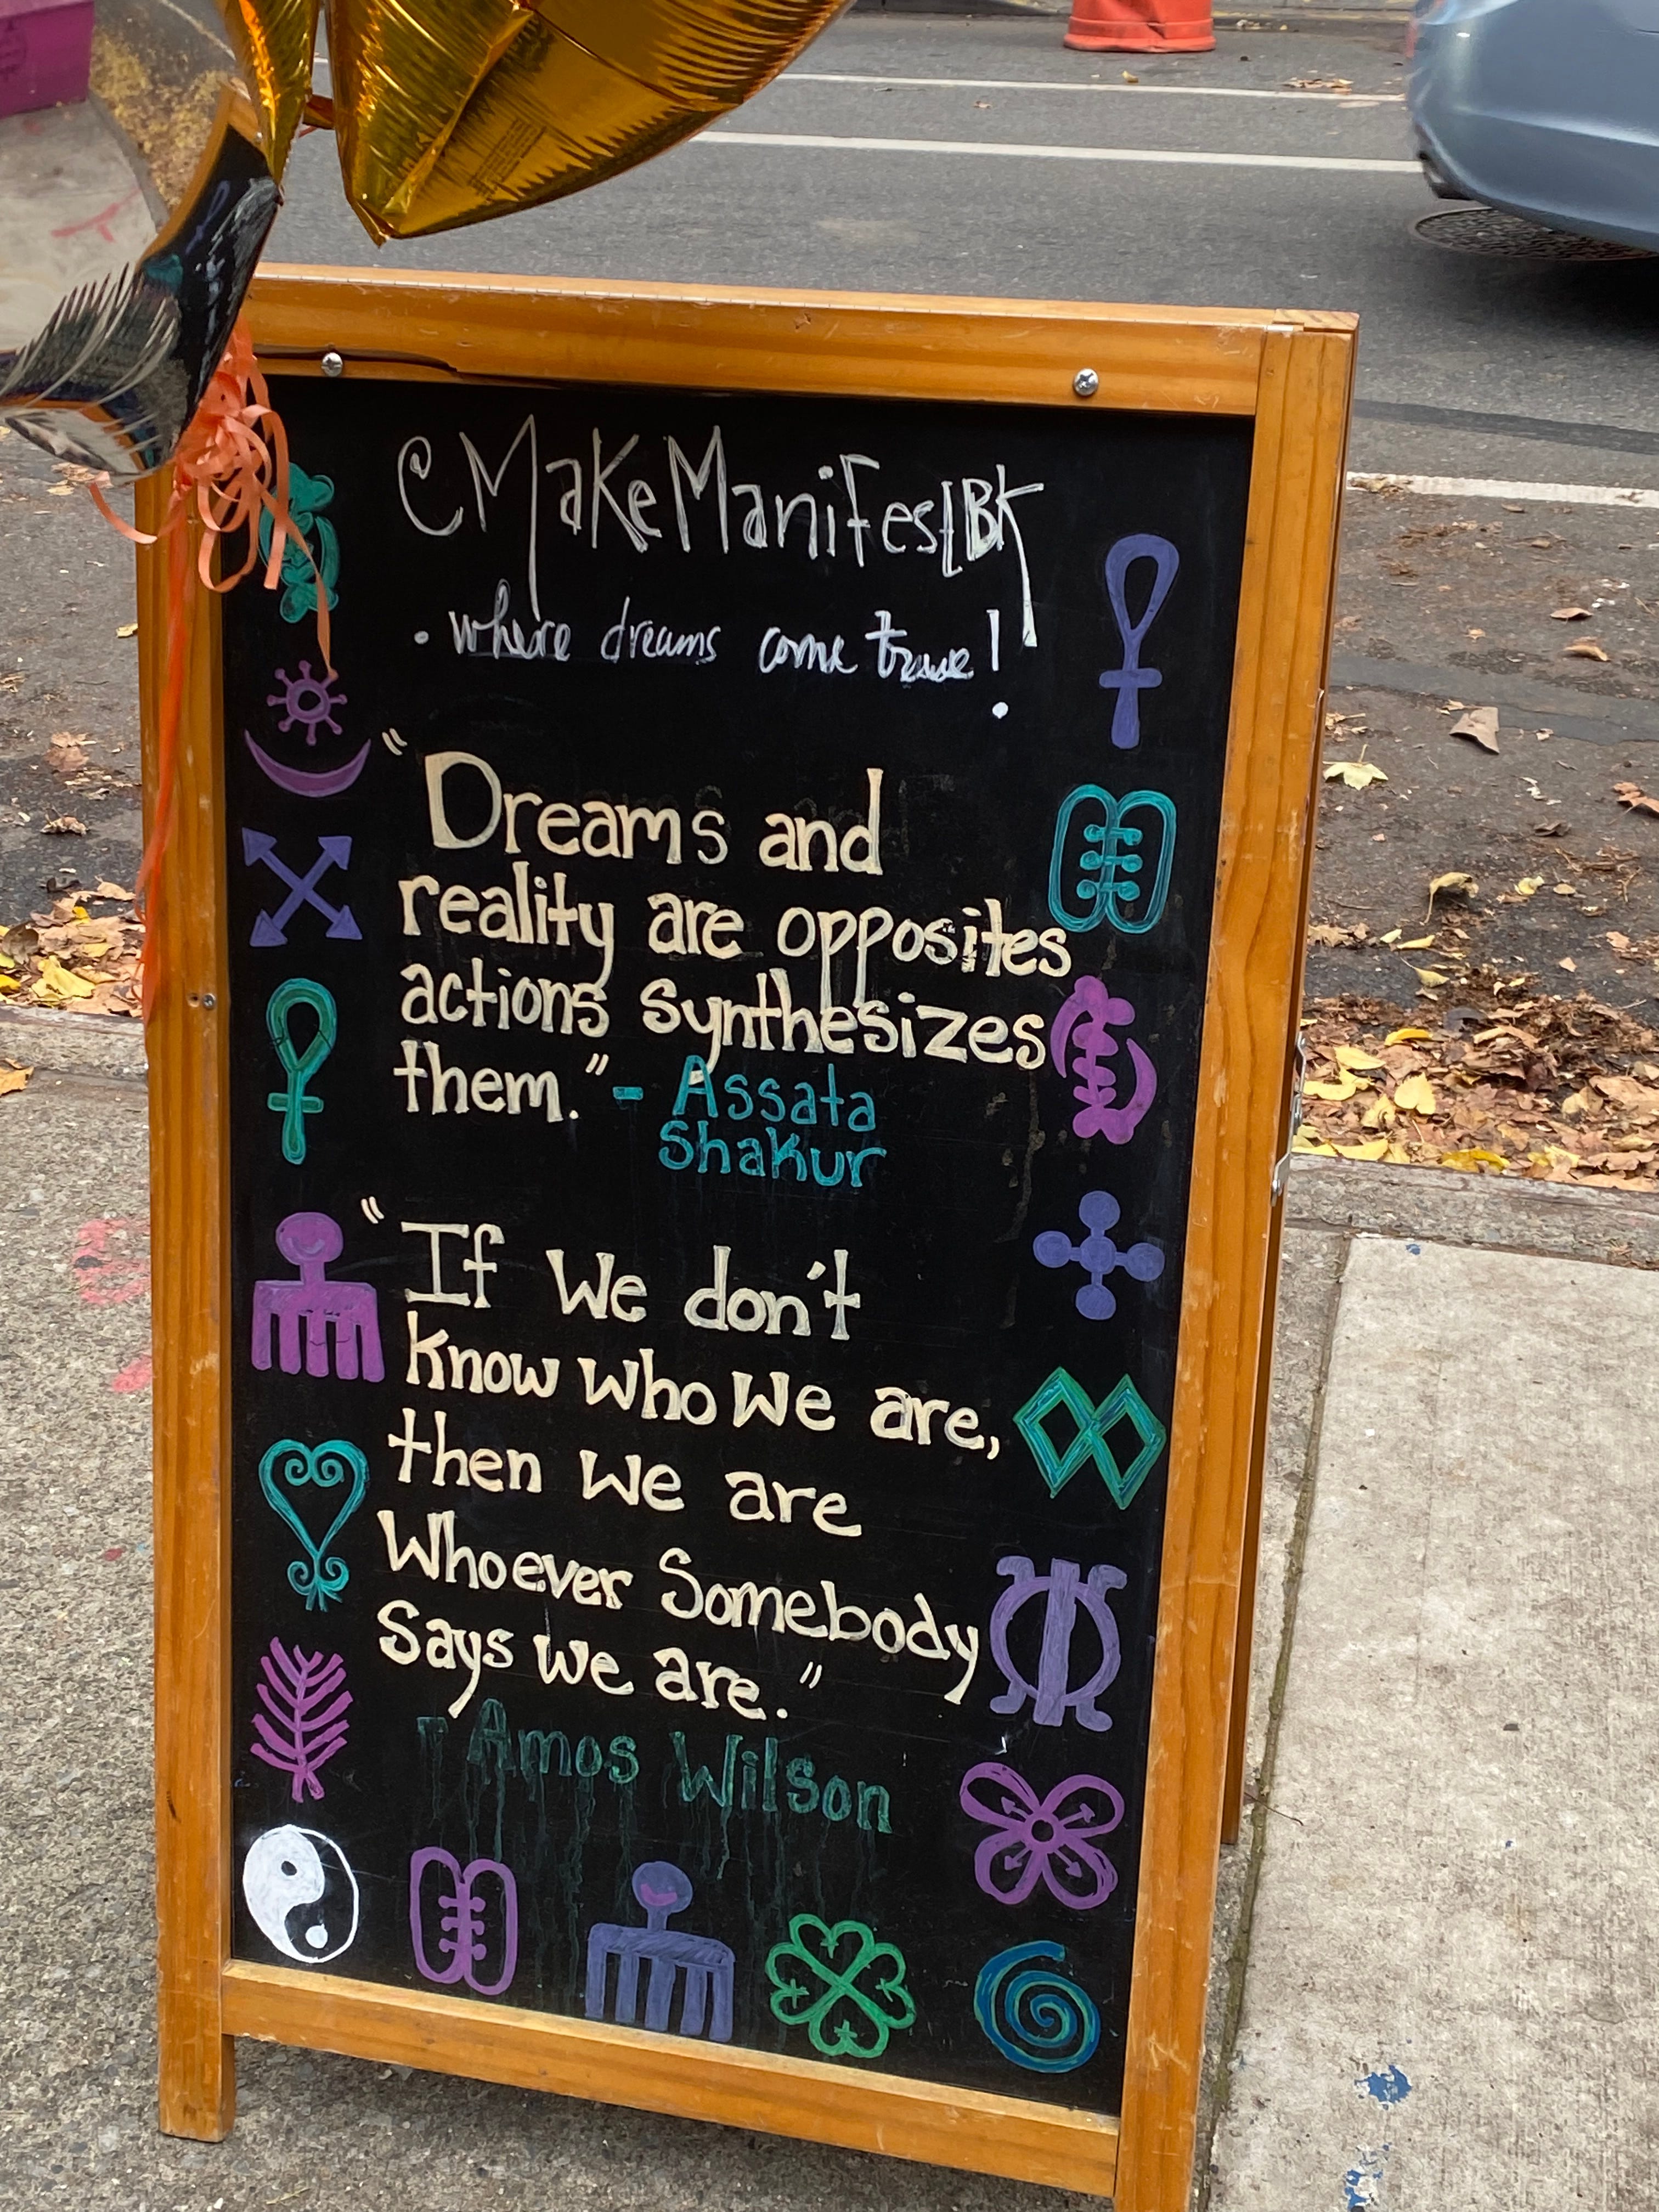 @MakeManifestBK
. where dreams come true!
"Dreams and
reality are opposites
actions synthesizes
them." - Assata
Shakur
"If we don't
know who we are,
then we are
Whoever Somebody
Says we are."
- Amos Wilson